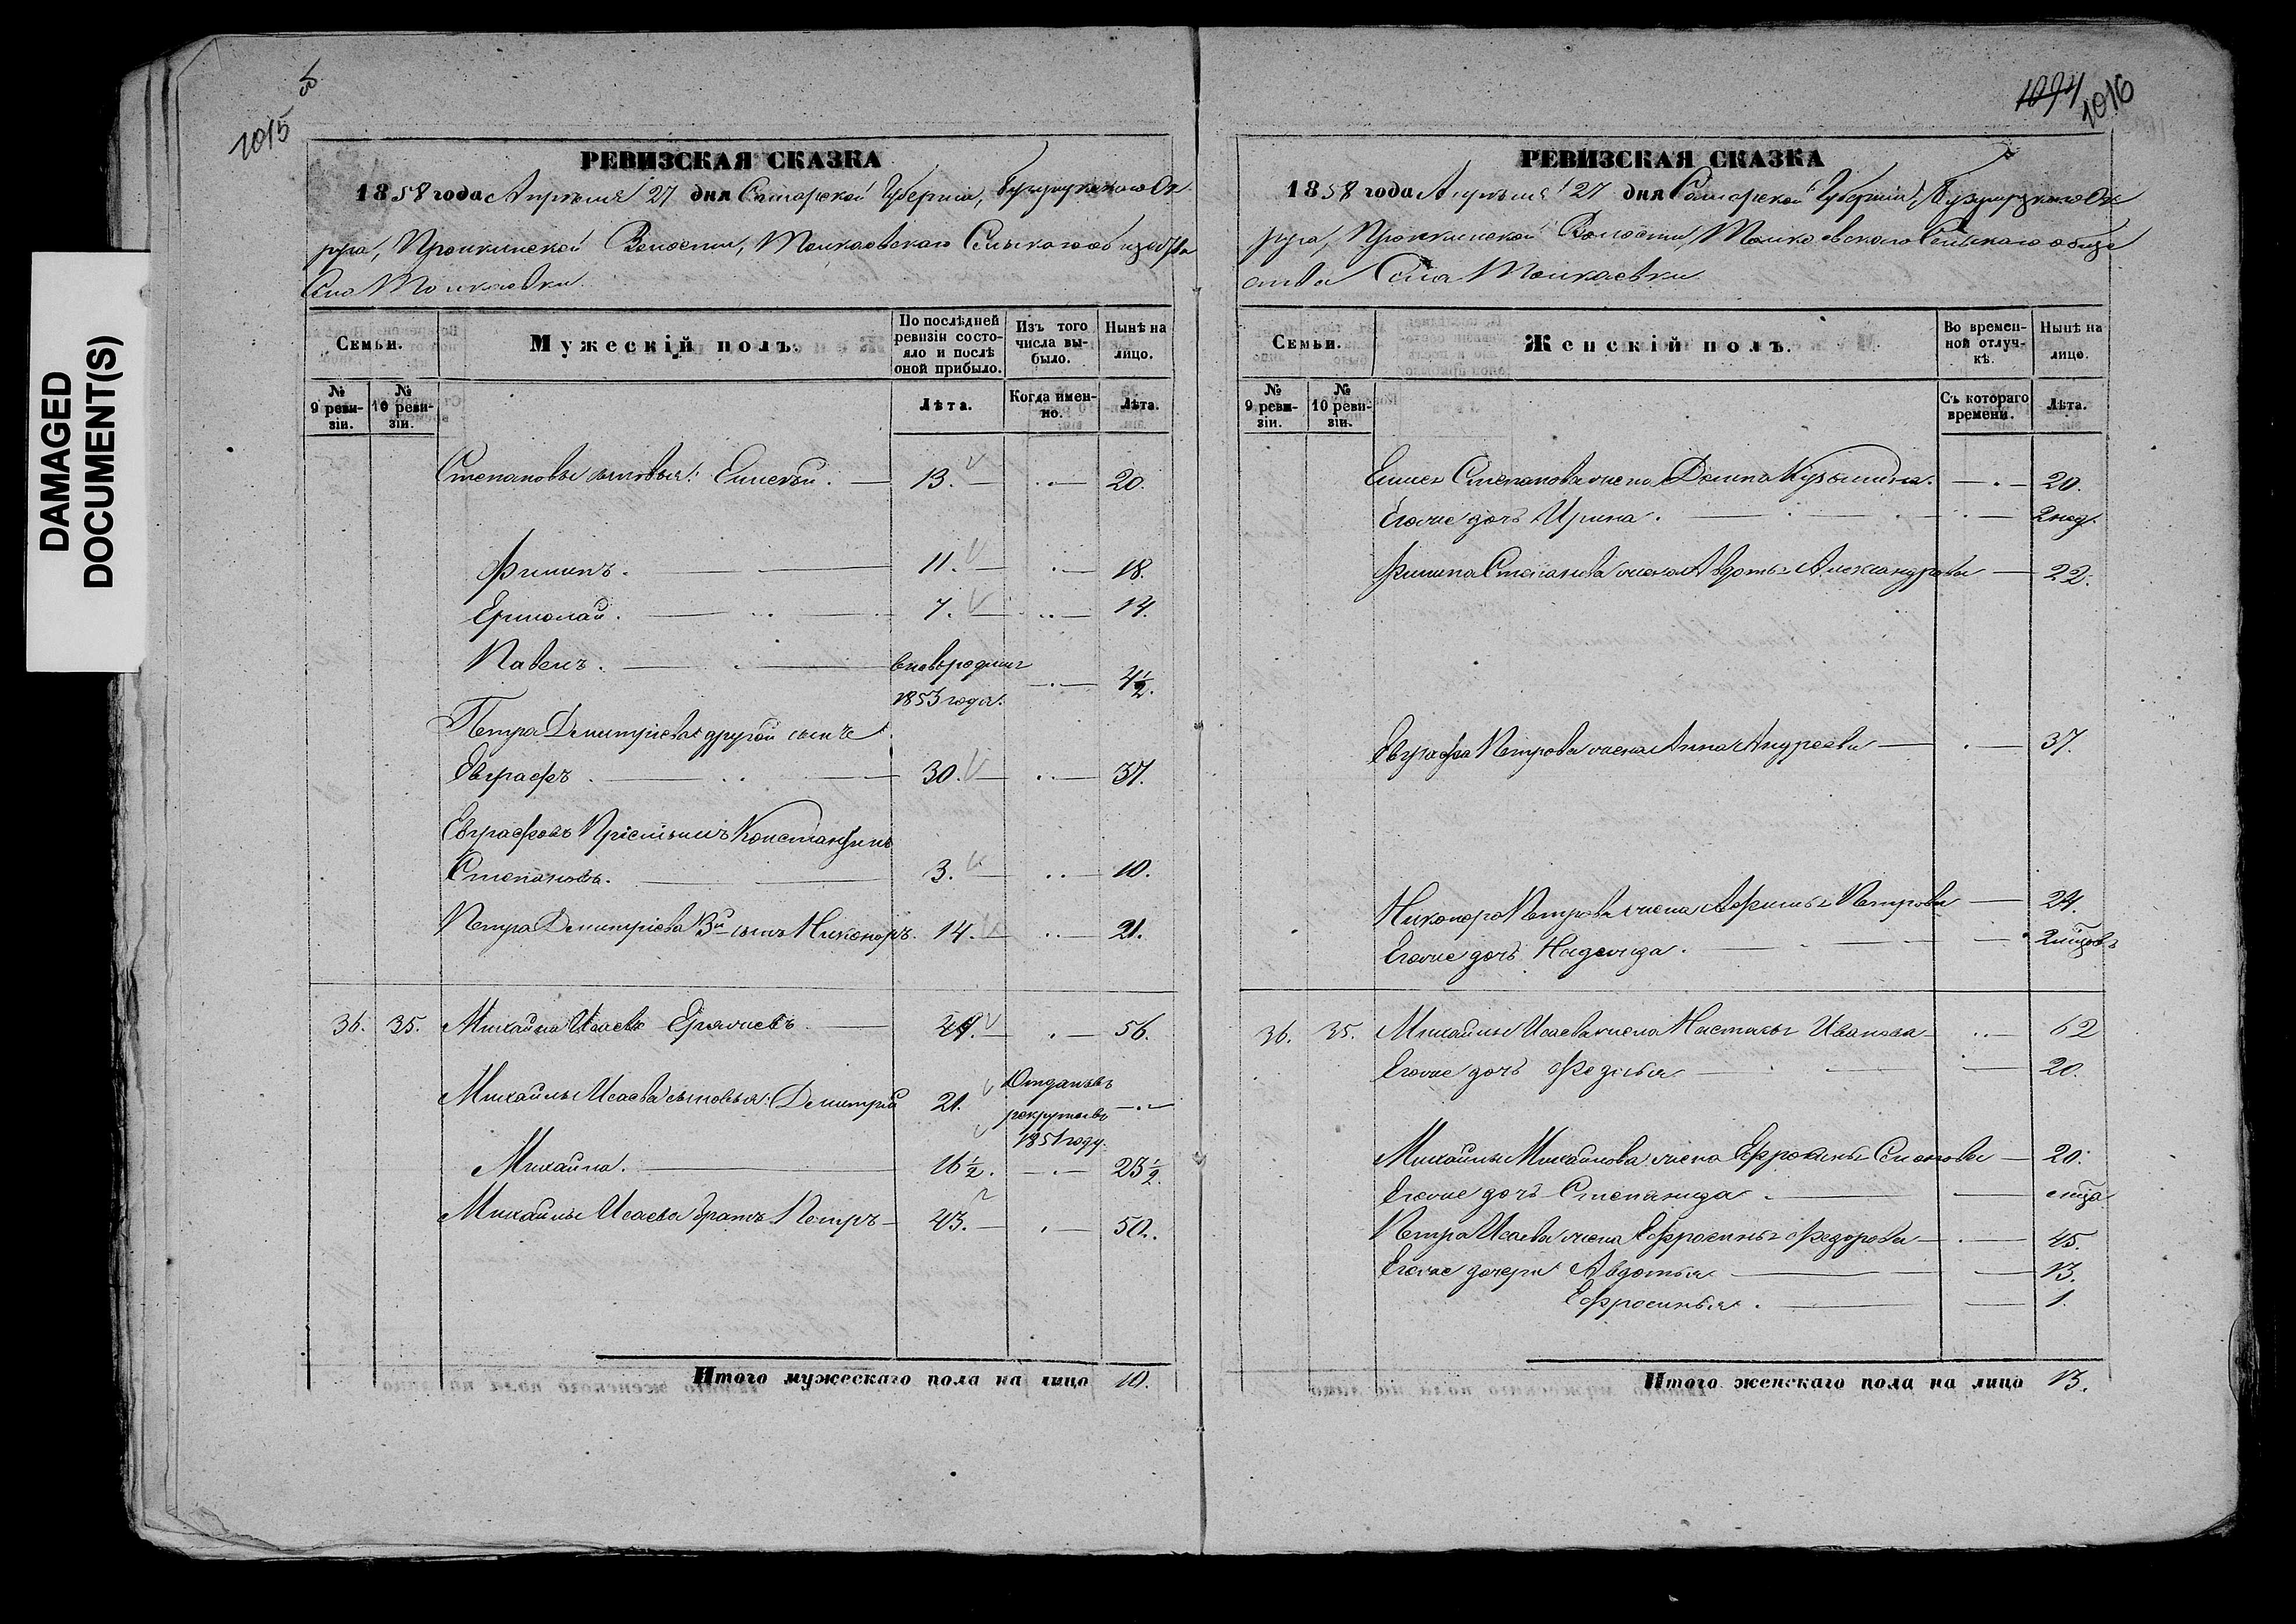 DAMAGED
DOCUMENT(S)
1015
РЕВИЗСКАЯ СКАЗКА
1858 года Апреля 27 дня Самарской Губернии, Бузулукскаго Ок
руга, Пронкинской Волости, Толкаевскаго Сельскаго общества
Села Толкаевки.
Семьи.
Мужескій полъ.
По послѣдней ревизіи состояло и послѣ оной прибыло.
Изъ того числа выбыло.
Нынѣ на лицо.
№ 9 ревизіи.
№ 10 ревизіи.
Лѣта.
Когда именно.
Лѣта.
Степановы сыновья: Елисей. 13. 20.
Филипъ. 11. 18.
Ермолай. 7. 14.
Павелъ. вновь родил 4½.
1853 года.
Петра Дмитріева другой сынъ
Евграфъ. 30. 37.
Евграфовъ Пріемышъ Константинъ
Степановъ. 3. 10.
Петра Дмитріева 3й сынъ Никоноръ. 14. 21.
36. 35. Михайла Исаевъ 49. 56.
Михайлы Исаева сыновья: Дмитрій 21. Отданъ въ
рекруты въ
1851 году.
Михайла. 16½. 23½.
Михайлы Исаева братъ Петръ 43. 50.
Итого мужескаго пола на лицо 10.
1094 1016
РЕВИЗСКАЯ СКАЗКА
1858 года Апреля 27 дня Самарской Губернии, Бузулукскаго Ок
руга, Пронкинской Волости, Толкаевскаго Сельскаго обще
ства Села Толкаевки
Семьи.
Женскій полъ.
Во временной отлучкѣ.
Нынѣ на лицо.
№ 9 ревизіи.
№ 10 ревизіи.
Съ котораго времени.
Лѣта.
Елисея Степанова жена Домна Кузьмина. 20.
Егоже дочь Ирина. 2 нед.
Филипа Степанова жена Авдотья Александрова 22.
Евграфа Петрова жена Анна Андреева 37.
Никонора Петрова жена Афимья Петрова 24.
Егоже дочь Надежда. 2 мцовъ
36. 35. Михайлы Исаева жена Настасья Иванова 62
Егоже дочь Федосья 20.
Михайлы Михайлова жена Ефросинья Семенова 20.
Егоже дочь Степанида. мца
Петра Исаева жена Ефросинья Федорова 45.
Егоже дочери Авдотья 13.
Ефросинья. 1.
Итого женскаго пола на лицо 13.